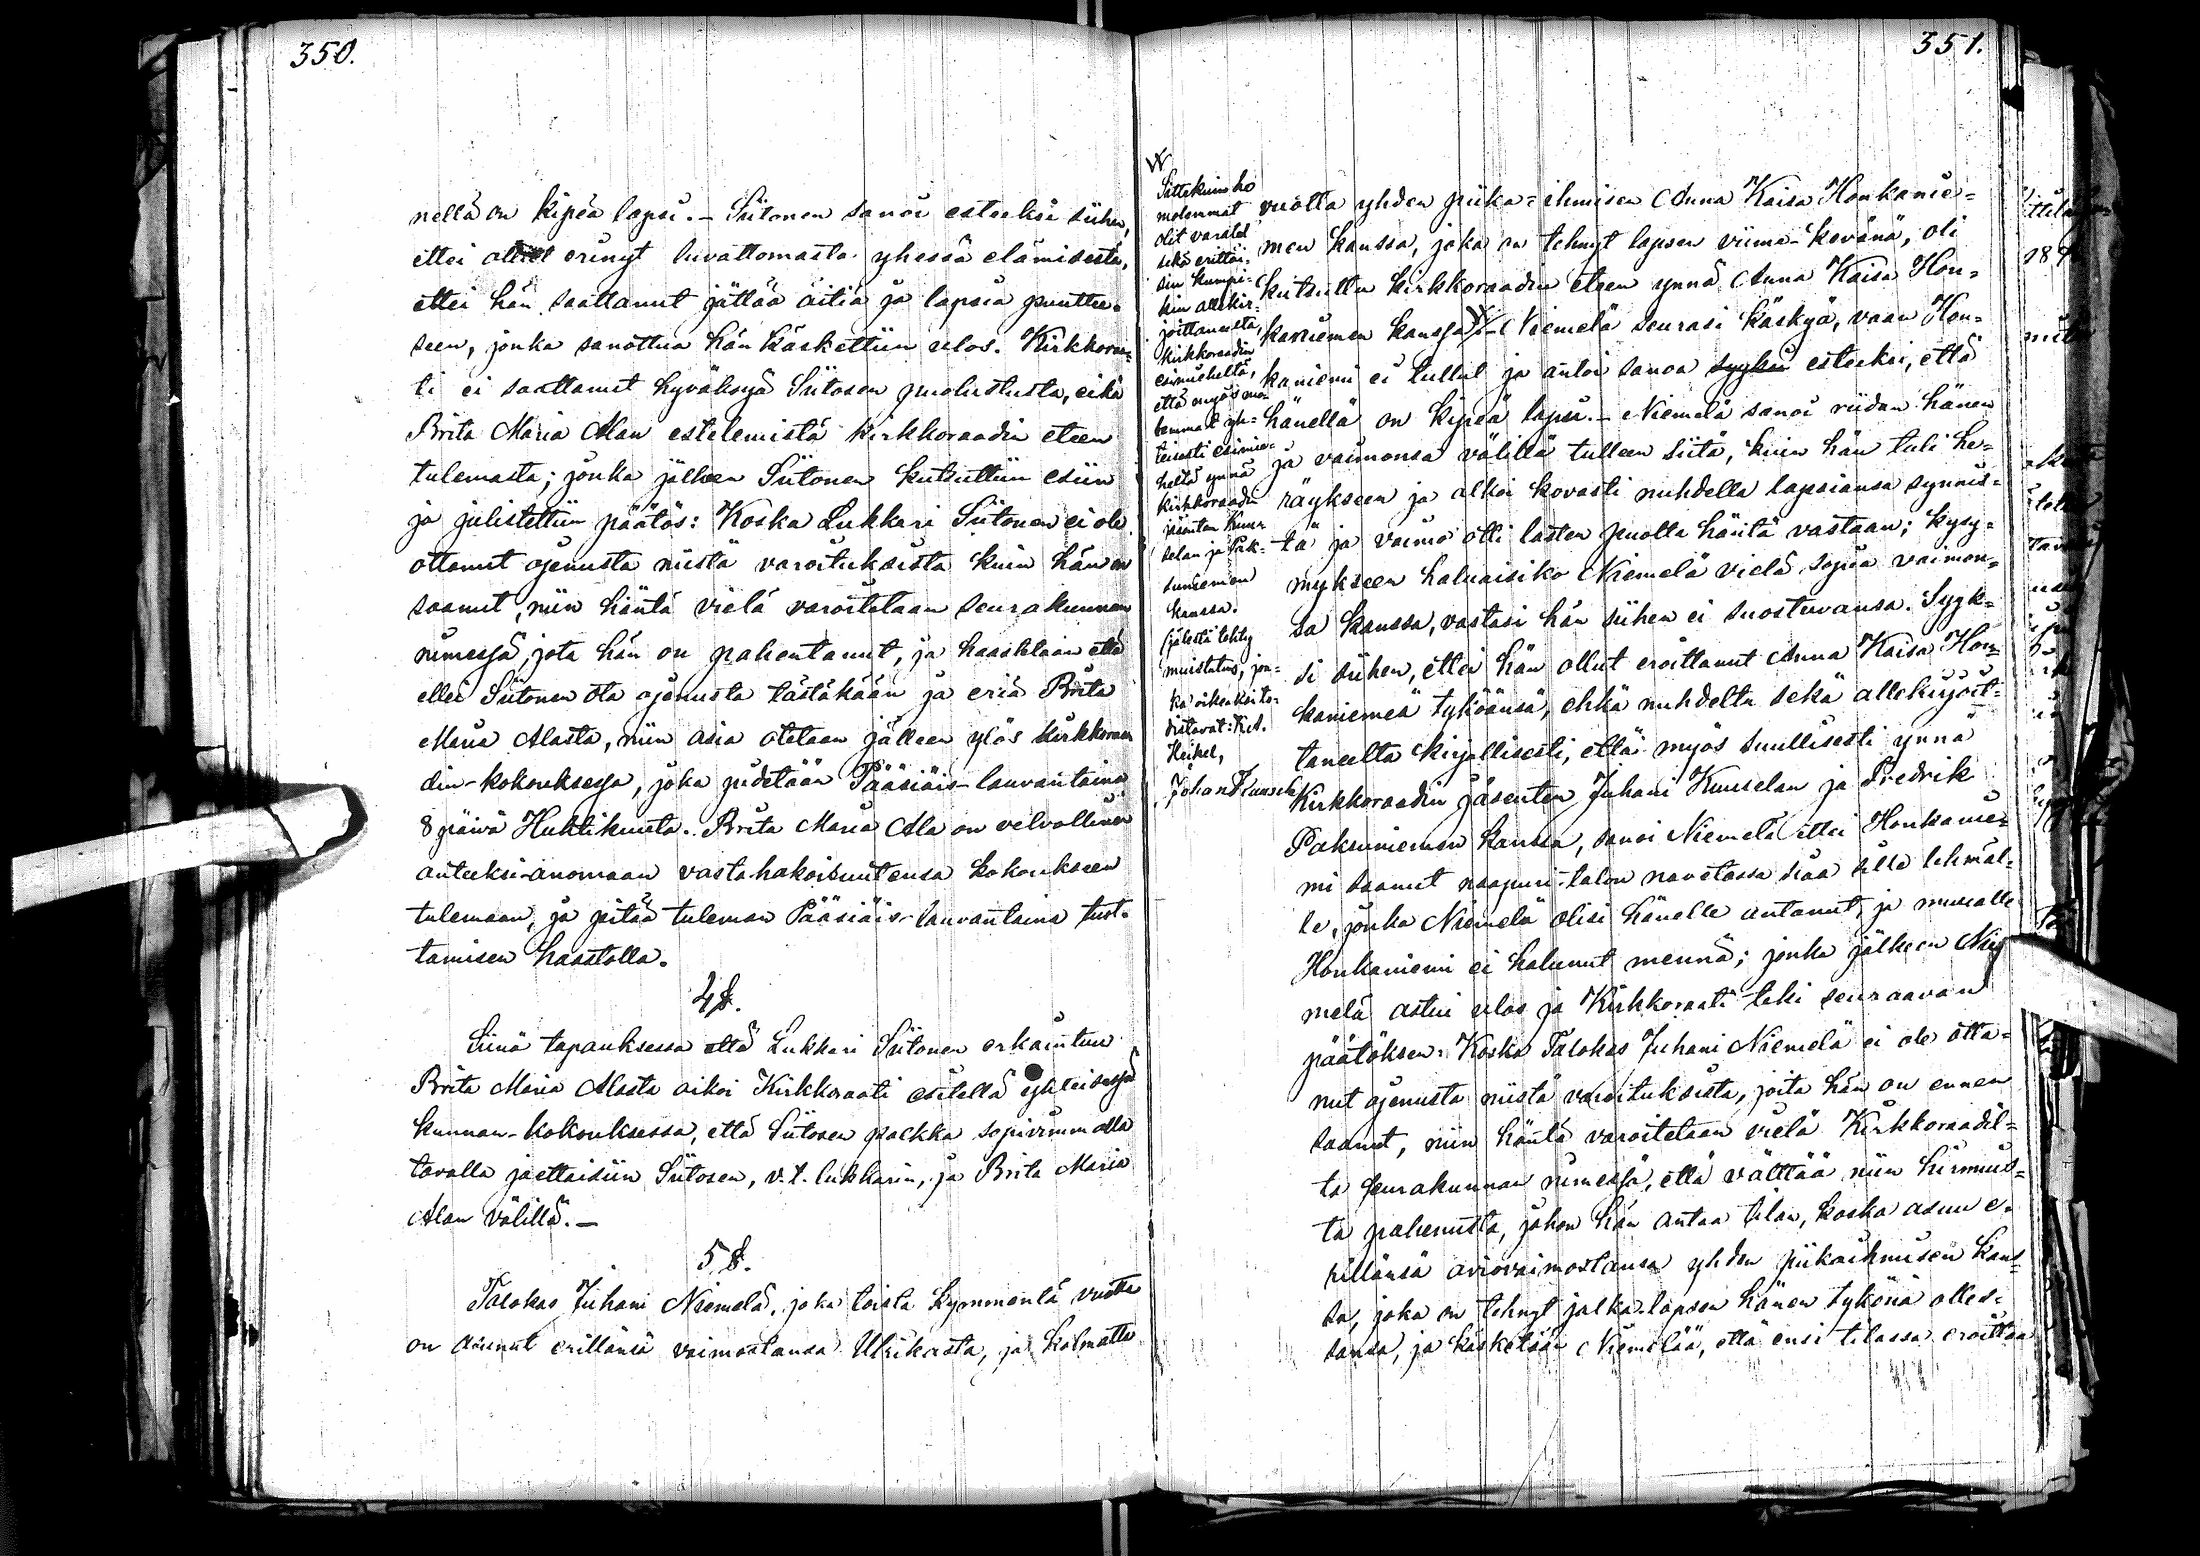 350.
nellä on kipeä lapsi. – Siitonen sanoi esteeksi siihen,
ettei ollut erinyt luvattomasta yhessä elämisestä,
ettei hän saattanut jättää äitiä ja lapsia puuttee-
seen, jonka sanottua hän käskettiin ulos. Kirkkoraa-
ti ei saattanut hyväksyä Siitosen puolustusta, eikä
Brita Maria Alan estelemistä kirkkoraadin eteen
tulemasta; jonka jälkeen Siitonen kutsuttiin esiin
ja julistettiin päätös: Koska Lukkari Siitonen ei ole
ottanut ojennusta niistä varoituksista kuin hän on
saanut, niin häntä vielä varoitetaan seurakunnan
nimessä, jota hän on pahentanut, ja haastetaan että
ellei Siitonen ota ojennusta tästäkään ja eriä Brita
Maria Alasta, niin asia otetaan jälleen ylös Kirkkoraa-
din-kokouksessa, joka pidetään Pääsiäis-lauvantaina
8 päivä Huhtikuuta. Brita Maria Ala on velvollinen
anteeksi-anomaan vasta-hakoisuutensa kokoukseen
tulemaan, ja pitää tuleman Pääsiäis-lauvantaina tuot-
tamisen haastolla.
4 §.
Siinä tapauksessa että Lukkari Siitonen erkaintuu
Brita Maria Alasta aikoi Kirkkoraati esitellä yhteisessä
kunnan-kokouksessa, että Siitosen palkka sopivimmalla
tavalla jaettaisiin Siitosen, v.t. lukkarin, ja Brita Maria
Alan välillä. –
5 §.
Talokas Juhani Niemelä, joka toista kymmentä vuotta
on asunut erillänsä vaimostansa Ulrikasta, ja kolmatta
351.
Sittekuin he
molemmat
olit varatut
sekä erittäi-
sin kumpi-
kin allekir-
joittaneelta,
kirkkoraadin
esimieheltä,
että myös mo-
lemmat yh-
teisesti esimie-
heltä ynnä
kirkkoraadin
jäsenten Kuu-
selan ja Pak-
suniemen
kanssa.
jälestä tehty
muistutus, jon-
ka oikeaksi to-
distavat: K. A.
Heikel,
Johan Kuusela
vuotta yhden piika-ihmisen Anna Kaisa Honkanie-
men kanssa, joka on tehnyt lapsen viime-kevänä, oli
kutsuttu kirkkoraadin eteen ynnä Anna Kaisa Hon-
kaniemen kanssa – Niemelä seurasi käskyä, vaan Hon-
kaniemi ei tullut ja antoi sanoa syyksi esteeksi, että
hänellä on kipeä lapsi. – Niemelä sanoi riidan hänen
ja vaimonsa välillä tulleen siitä, kuin hän tuli he-
räykseen ja alkoi kovasti nuhdella lapsiansa synnis-
tä ja vaimo otti lasten puolta häntä vastaan; kysy-
mykseen haluaisiko Niemelä vielä sopia vaimon-
sa kanssa, vastasi hän siihen ei suostuvansa. Syyk-
si siihen, ettei hän ollut eroittanut Anna Kaisa Hon-
kaniemeä tyköänsä, ehkä nuhdeltu sekä allekirjoit-
taneelta kirjallisesti, että myös suullisesti ynnä
Kirkkoraadin jäsenten Juhani Kuuselan ja Fredrik
Paksuniemen kanssa, sanoi Niemelä ettei Honkanie-
mi saanut naapuri-talon navetassa siaa sille lehmäl-
le, jonka Niemelä olisi hänelle antanut, ja muualle
Honkaniemi ei halunnut mennä; jonka jälkeen Nie-
melä astui ulos ja Kirkkoraati teki seuraavan
päätöksen: Koska Talokas Juhani Niemelä ei ole otta-
nut ojennusta niistä varoituksista, joita hän on ennen
saanut, niin häntä varoitetaan vielä Kirkkoraadil-
ta seurakunnan nimessä, että välttää niin hirmuis-
ta pahennusta, johon hän antaa tilan, koska asuu e-
rillänsä aviovaimostansa yhden piikaihmisen kans-
sa, joka on tehnyt jalka-lapsen hänen tykönä olles-
sansa, ja käsketään Niemelää, että ensi tilassa eroittaa